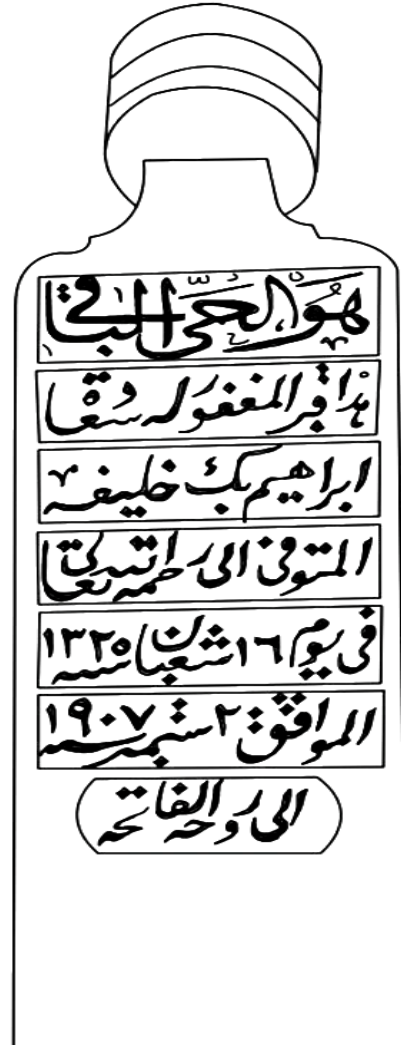 هو الحي الباقي
هذا قبر المغفور له سعادة
ابراهيم بك خليفه
المتوفى الى رحمة الله تعالى
في يوم ١٦ شعبان سنه ١٣٢٥
الموافق ٢ سبتمبر سنه ١٩٠٧
الى روحه الفاتحه